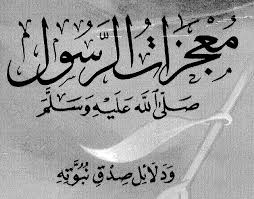 مُعْجِزَاتُ الرَّسُول
صَلَّىٰ اللَّه عَلَيْهِ وَسَلَّمَ
وَدَلَائِل صِدْقِ نُبُوَّتِهِ